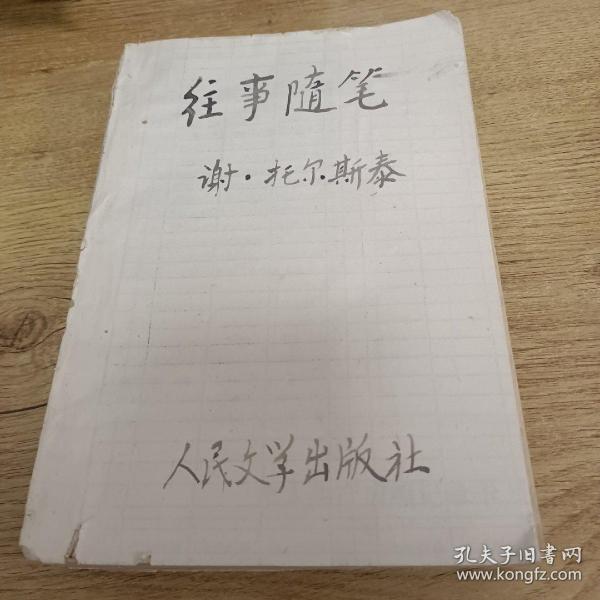 往事随笔
谢·托尔斯泰
人民文学出版社
孔夫子旧書网
www.kongfz.com